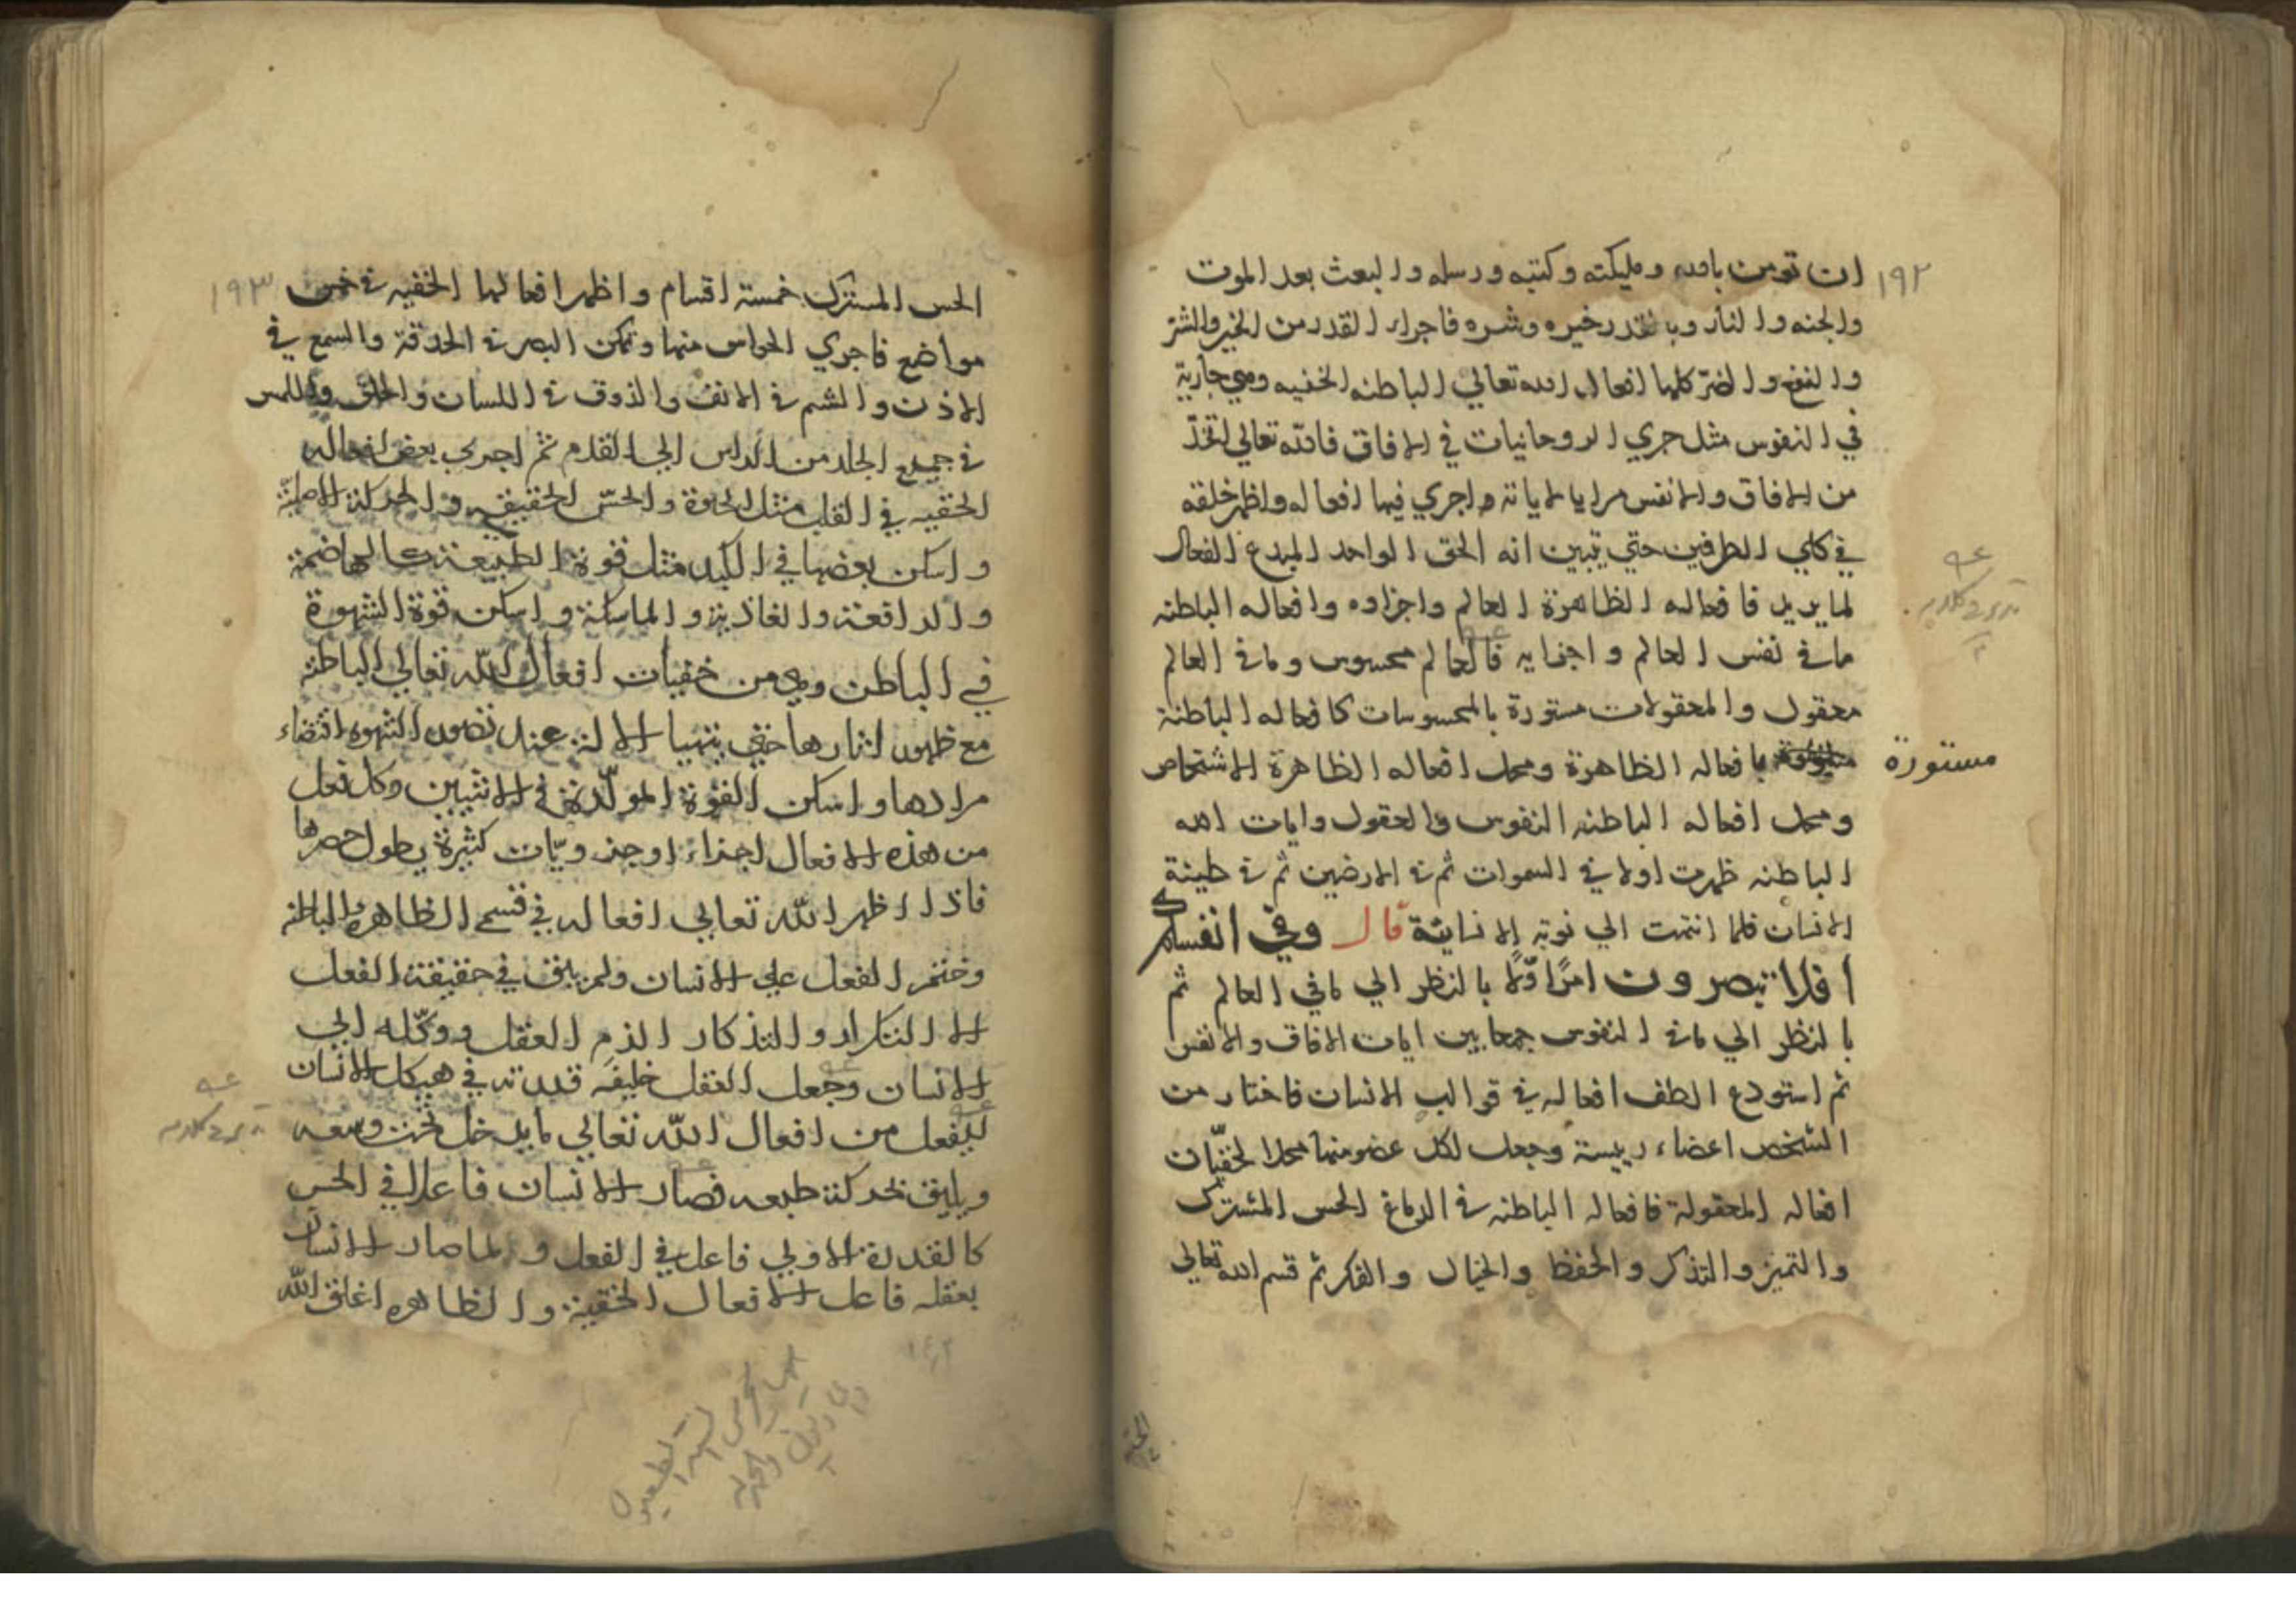 ١٩٢
ان تومن بالله ومليكته وكتبه ورسله والبعث بعد الموت
والجنه والنار وبالقدر خيره وشره فاجراء القدر من الخير والشر
والنفع والضر كلها افعال الله تعالي الباطنه الخفيه وهي جارية
في النفوس مثل جري الروحانيات في الافاق فالله تعالي اتخذ
من الافاق والانفس مرايا لاياته واجري فيها افعاله واظهر خلقه
في كلي الطرفين حتي تبين انه الحق الواحد المبدع الفعال
لما يريد فافعاله الظاهرة العالم واجزاوه وافعاله الباطنه
ما في نفس العالم واجزايه فالعالم محسوس وما في العالم
معقول والمعقولات مستورة بالمحسوسات كافعاله الباطنة
مستورة
بافعاله الظاهرة ومحل افعاله الظاهرة الاشخاص
ومحل افعاله الباطنه النفوس والعقول وايات الله
الباطنه ظهرت اولا في السموات ثم في الارضين ثم في طينة
الانسان فلما انتهت الي نوبة الانسانية قال وفي انفسكم
افلا تبصرون امرا اولا بالنظر الي ما في العالم ثم
بالنظر الي ما في النفوس جمعا بين ايات الافاق والانفس
ثم استودع الطف افعاله في قوالب الانسان فاختار من
الشخص اعضاء رييسة وجعل لكل عضو منها محلا لخفيّات
افعاله المعقولة فافعاله الباطنه في الدماغ الحس المشترك
والتميز والتذكر والحفظ والخيال والفكر ثم قسم الله تعالي
١٩٣
الحس المشترك خمسة اقسام واظهر افعالها الخفيه في خمس
مواضع فاجري الحواس منها وتمكن البصر في الحدقة والسمع في
الاذن والشم في الانف والذوق في اللسان والحلق واللمس
في جميع الجلد من الراس الي القدم ثم اجري بعض افعاله
الخفيه في القلب مثل الحيوة والحسّ الحقيقي والحركة الاصليّة
واسكن بعضها في الكبد مثل قوة الطبيعة كالهاضمة
والدافعة والغاذية والماسكة واسكن قوة الشهوة
في الباطن وهي من خفيات افعال الله تعالي الباطنة
مع ظهور اثارها حتي يتهيا الالة عند تصور الشهوه اقتضاء
مرادها واسكن القوة المولّدة في الانثيين وكل فعل
من هذه الافعال اجزاء اوجزويّات كثيرة يطول حصرها
فاذا اظهر الله تعالي افعاله في قسمي الظاهر والباطن
وختم الفعل علي الانسان ولم يبق في حقيقة الفعل
الا التكرار والتذكار الزم العقل ووكّله الي
الانسان وجعل العقل خليفه قدرته في هيكل الانسان
ليفعل من افعال الله تعالي ما يدخل تحت وسعه
ويليق بحركة طبعه فصار الانسان فاعلا في الحس
كالقدرة الاولي فاعل في الفعل ولما صار الانسان
بعقله فاعل الافعال الخفية والظاهره اغلق الله